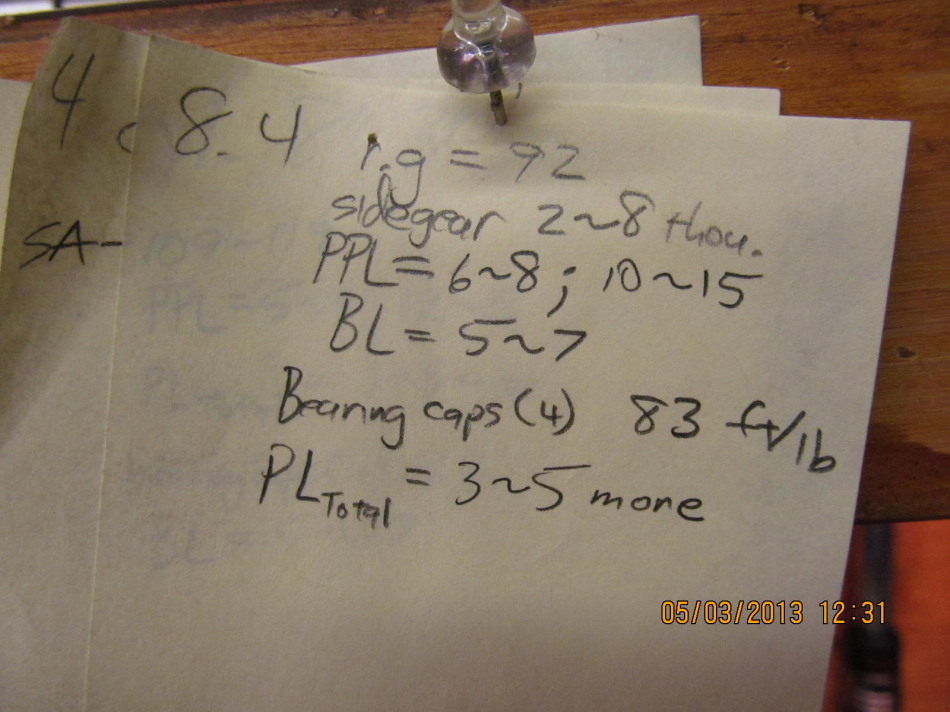 4 c 8.4
r.g = 92
sidegear 2~8 thou.
SA-
PPL = 6~8 ; 10~15
BL = 5~7
Bearing caps (4) 83 ft/lb
PL Total = 3~5 more
05/03/2013 12:31